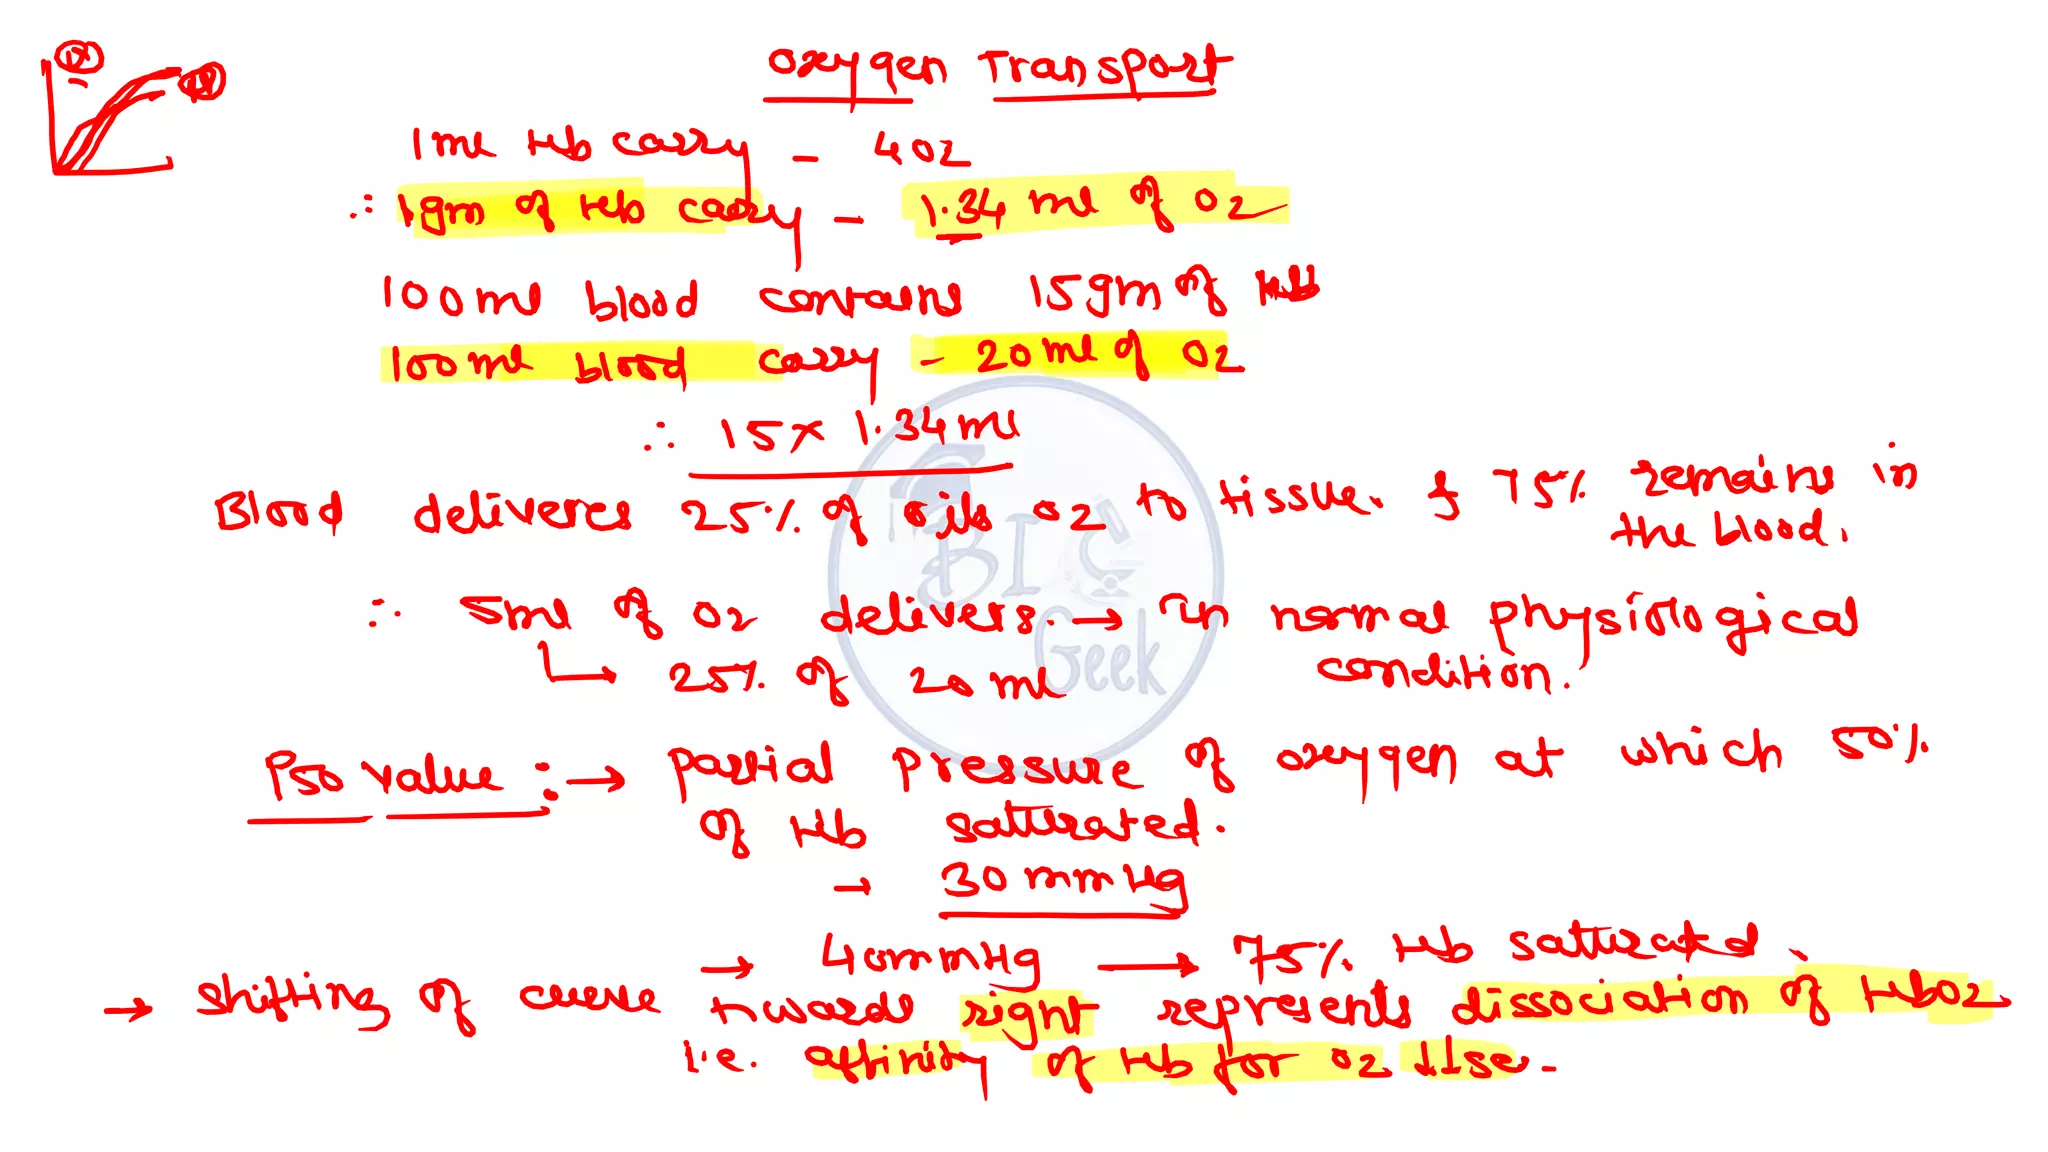 Oxygen Transport
1 ml Hb carry - 4O2
∴ 1gm of Hb carry - 1.34 ml of O2
100ml blood contains 15gm of Hb
100ml blood carry - 20ml of O2
∴ 15 x 1.34 ml
Blood deliveres 25% of its O2 to tissue. & 75% remains in
the blood.
∴ 5ml of O2 delivers. → In normal physiological
condition.
↳ 25% of 20 ml
P50 value :→ partial pressure of oxygen at which 50%
of Hb satturated.
→ 30 mmHg
→ 40mmHg → 75% Hb satturated.
→ shifting of curve towards right represents dissociation of HbO2
i.e. affinity of Hb for O2 ↓↓se.
BIO
Geek